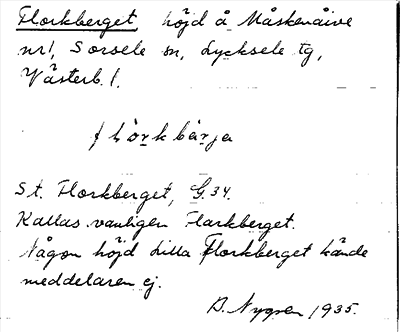 Florkberget höjd å Måskenåive
nr 1, Sorsele sn, Lycksele tg,
Västerb. l.
flörkbärja
St. Florkberget, G. 34.
Kallas vanligen Flarkberget.
Någon höjd Lilla Florkberget kände
meddelaren ej.
B. Nygren 1935.